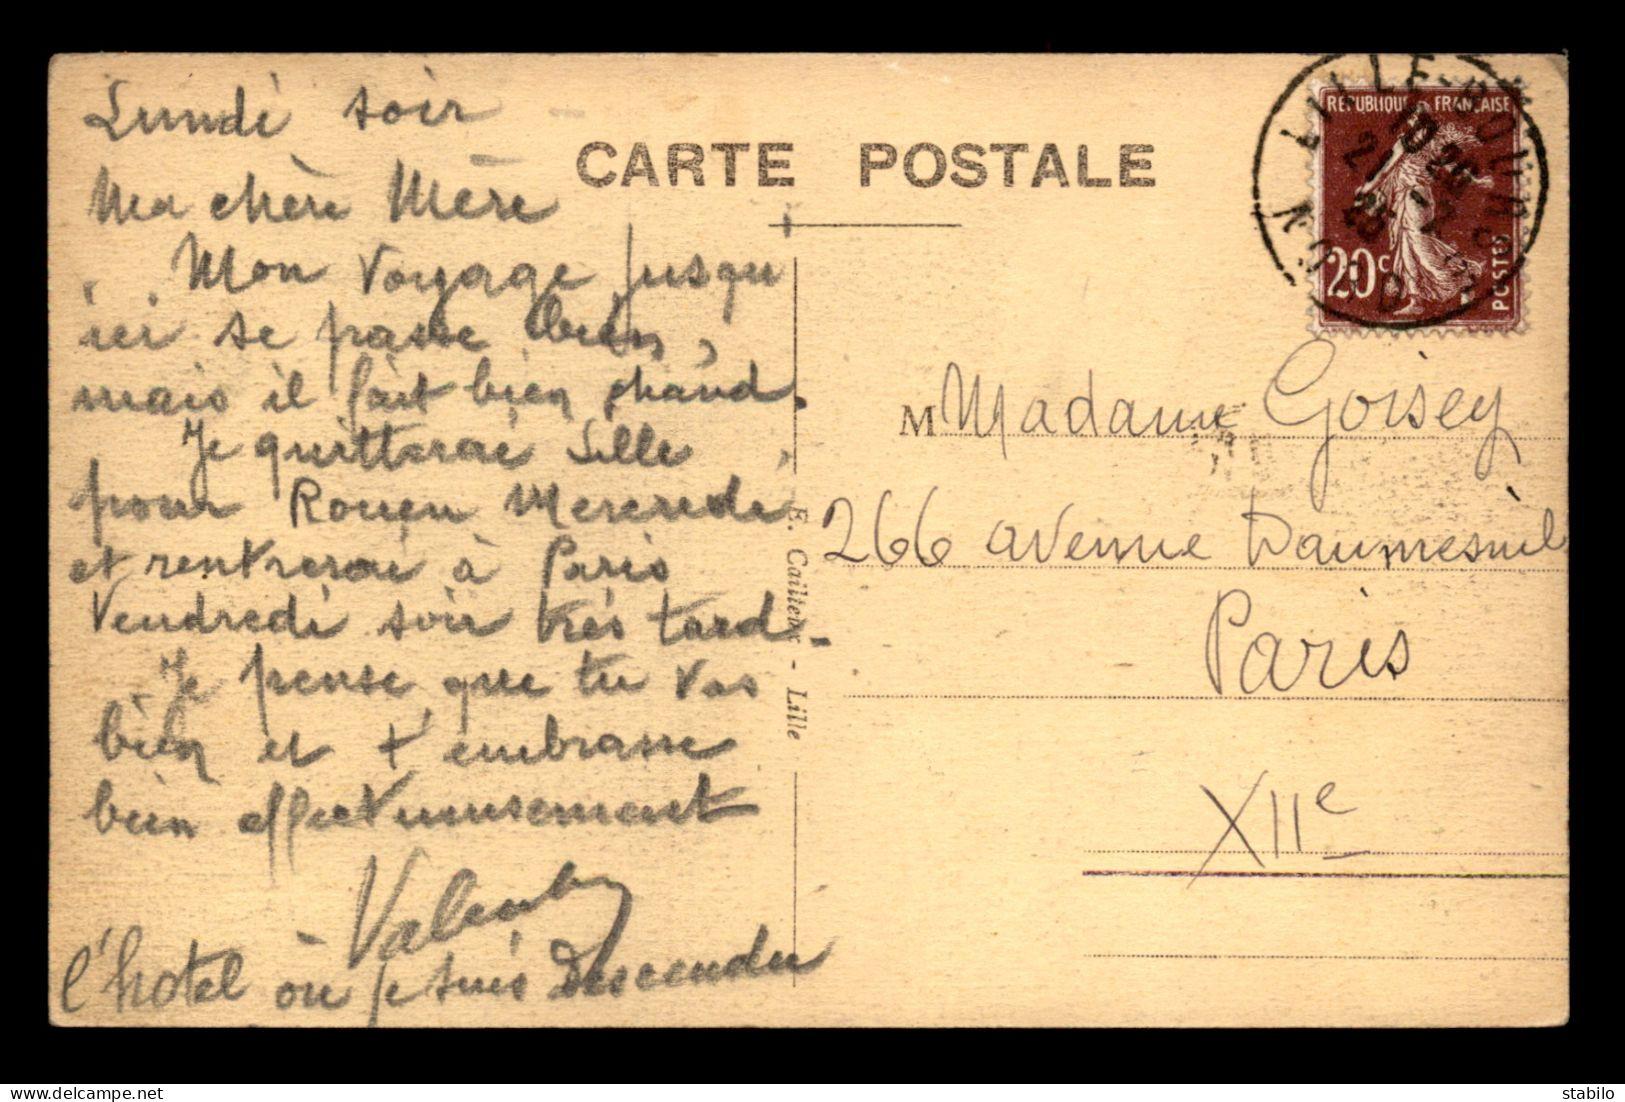 Lundi soir
Ma chère Mère
Mon voyage jusqu'
ici se passe bien,
mais il fait bien chaud.
Je quitterai Lille
pour Rouen Mercredi
et rentrerai à Paris
Vendredi soir très tard.
Je pense que tu vas
bien et t'embrasse
bien affectueusement
l'hotel où je suis descendu
CARTE POSTALE
E. Cailteux - Lille
REPUBLIQUE FRANÇAISE
20c
POSTES
LILLE
NORD
M Madame Goisey
266 avenue Daumesnil
Paris
XIIe
stabilo